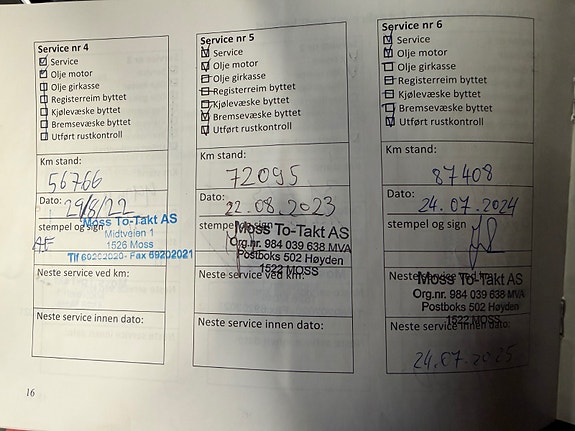 Service nr 4
Service
Olje motor
Olje girkasse
Registerreim byttet
Kjølevæske byttet
Bremsevæske byttet
Utført rustkontroll
Km stand:
56766
Dato: 29/8/22
stempel og sign
Moss To-Takt AS
Midtveien 1
1526 Moss
Tlf 69202020- Fax 69202021
Neste service ved km:
Neste service innen dato:
Service nr 5
Service
Olje motor
Olje girkasse
Registerreim byttet
Kjølevæske byttet
Bremsevæske byttet
Utført rustkontroll
Km stand:
72095
Dato:
22.08.2023
stempel og sign
Moss To-Takt AS
Org.nr. 984 039 638 MVA
Postboks 502 Høyden
1522 MOSS
Neste service ved km:
Neste service innen dato:
Service nr 6
Service
Olje motor
Olje girkasse
Registerreim byttet
Kjølevæske byttet
Bremsevæske byttet
Utført rustkontroll
Km stand:
87408
Dato:
24.07.2024
stempel og sign
Neste service ved km:
Moss To-Takt AS
Org.nr. 984 039 638 MVA
Postboks 502 Høyden
1522 MOSS
Neste service innen dato:
24.07.2025
16